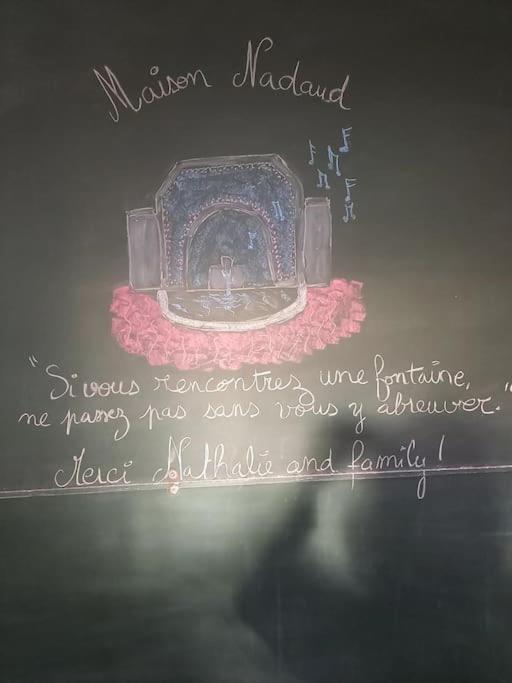 Maison Nadaud
"Si vous rencontrez une fontaine,
ne passez pas sans vous y abreuver."
Merci Nathalie and family !